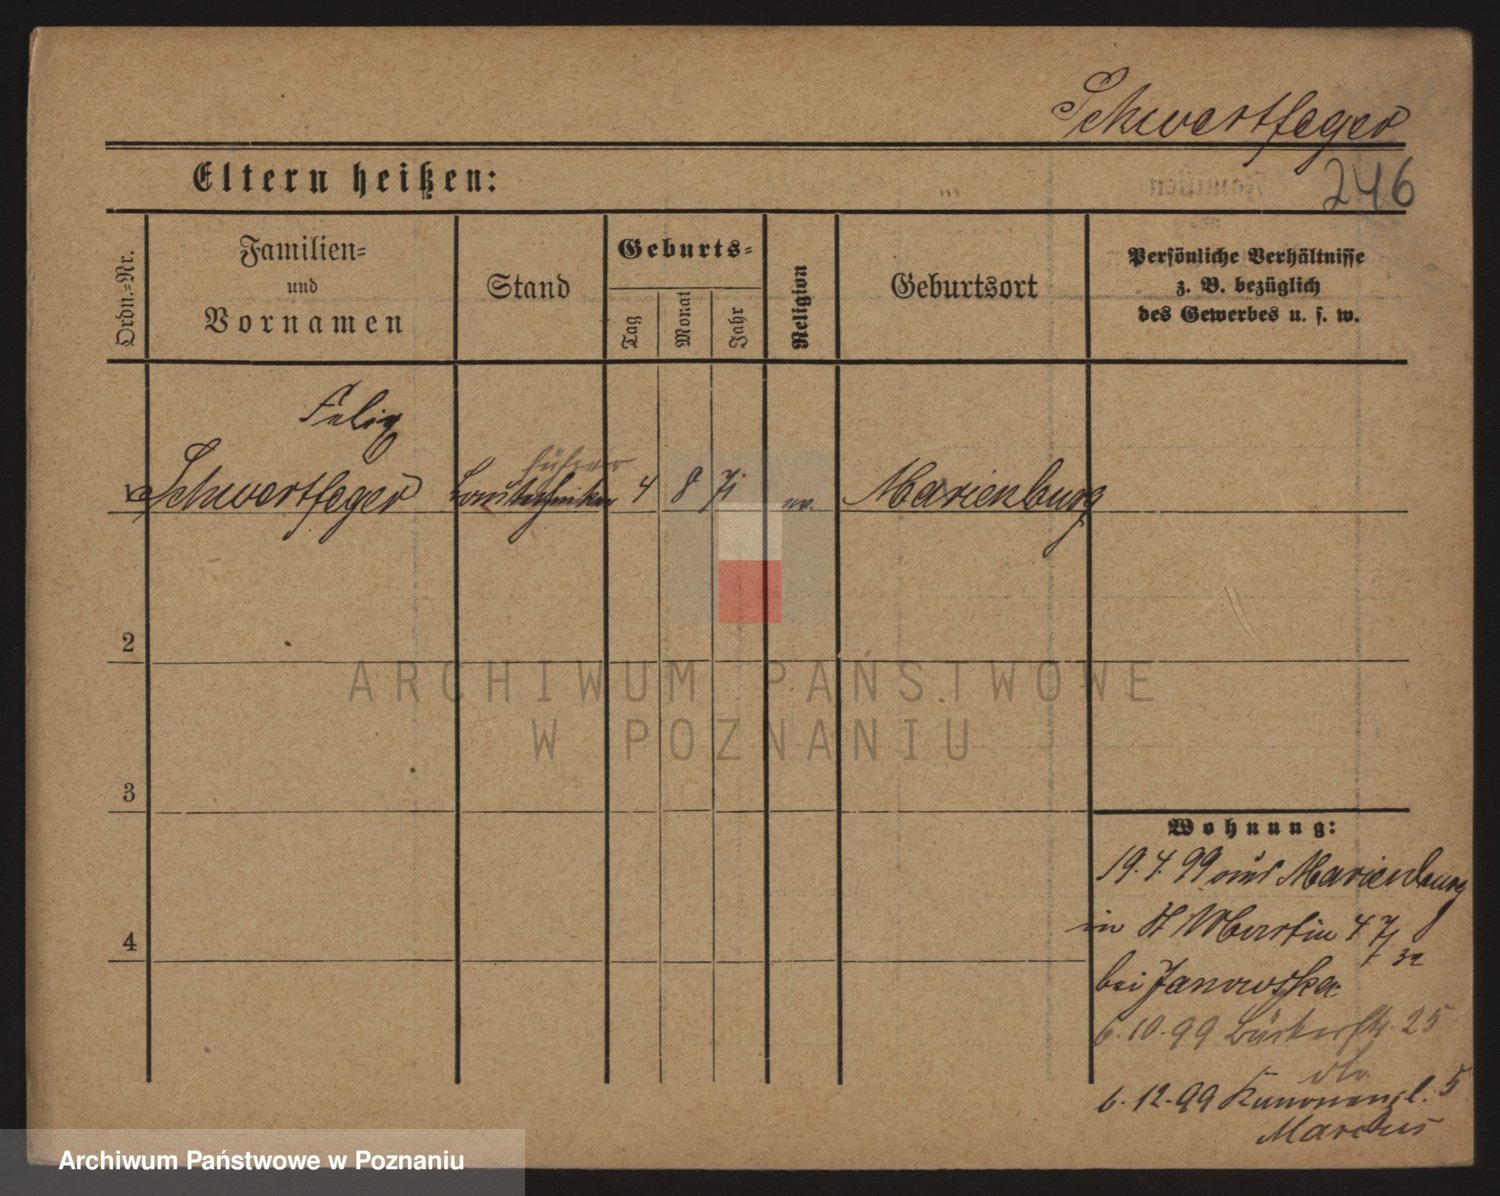 Schwertfeger
Eltern heißen:
246
Ordn.=Nr.
Familien=
und
Vornamen
Stand
Geburts=
Tag
Monat
Jahr
Religion
Geburtsort
Persönliche Verhältnisse
z. B. bezüglich
des Gewerbes u. s. w.
Felix
Schwertfeger
führer
Bautechniker
4 8 71
ev.
Marienburg
2
3
4
ARCHIWUM PAŃSTWOWE
W POZNANIU
Wohnung:
19.4.99 aus Marienburg
in St Martin 47
bei Janowska
6.10.99 Bäckerstr. 25
6.12.99 Kanonenpl. 5
Marcus
Archiwum Państwowe w Poznaniu